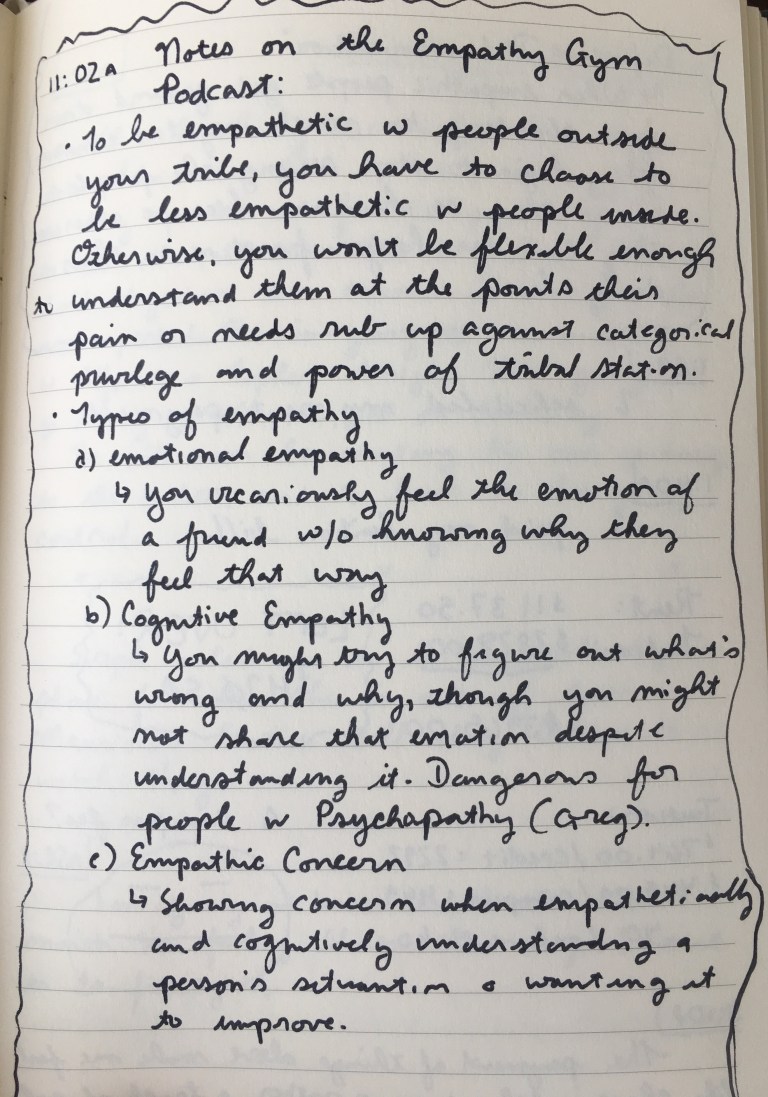 11:02A Notes on the Empathy Gym
Podcast:
· To be empathetic w people outside
your tribe, you have to choose to
be less empathetic w people inside.
Otherwise, you won't be flexible enough
to understand them at the points their
pain or needs rub up against categorical
privilege and power of tribal station.
· Types of empathy
a) emotional empathy
↳ you vicariously feel the emotion of
a friend w/o knowing why they
feel that way
b) Cognitive Empathy
↳ You might try to figure out what's
wrong and why, though you might
not share that emotion despite
understanding it. Dangerous for
people w Psychapathy (Greg).
c) Empathic Concern
↳ Showing concern when empathetically
and cognitively understanding a
person's situation & wanting it
to improve.